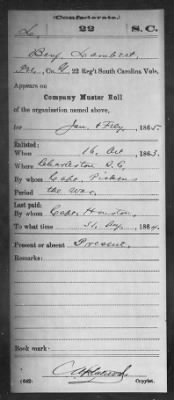 (Confederate.)
L 22 S.C.
Benj Lambert
Pvt, Co. G, 22 Reg't South Carolina Vols.
Appears on
Company Muster Roll
of the organization named above,
to Jan & Feby, 1865.
Enlisted:
When 16 Oct, 1863.
Where Charleston S.C.
By whom Capt. Pickens
Period the war.
Last paid:
By whom Capt. Houston,
To what time 31 Aug, 1864.
Present or absent Present.
Remarks:
Book mark:
(642) Copyist.